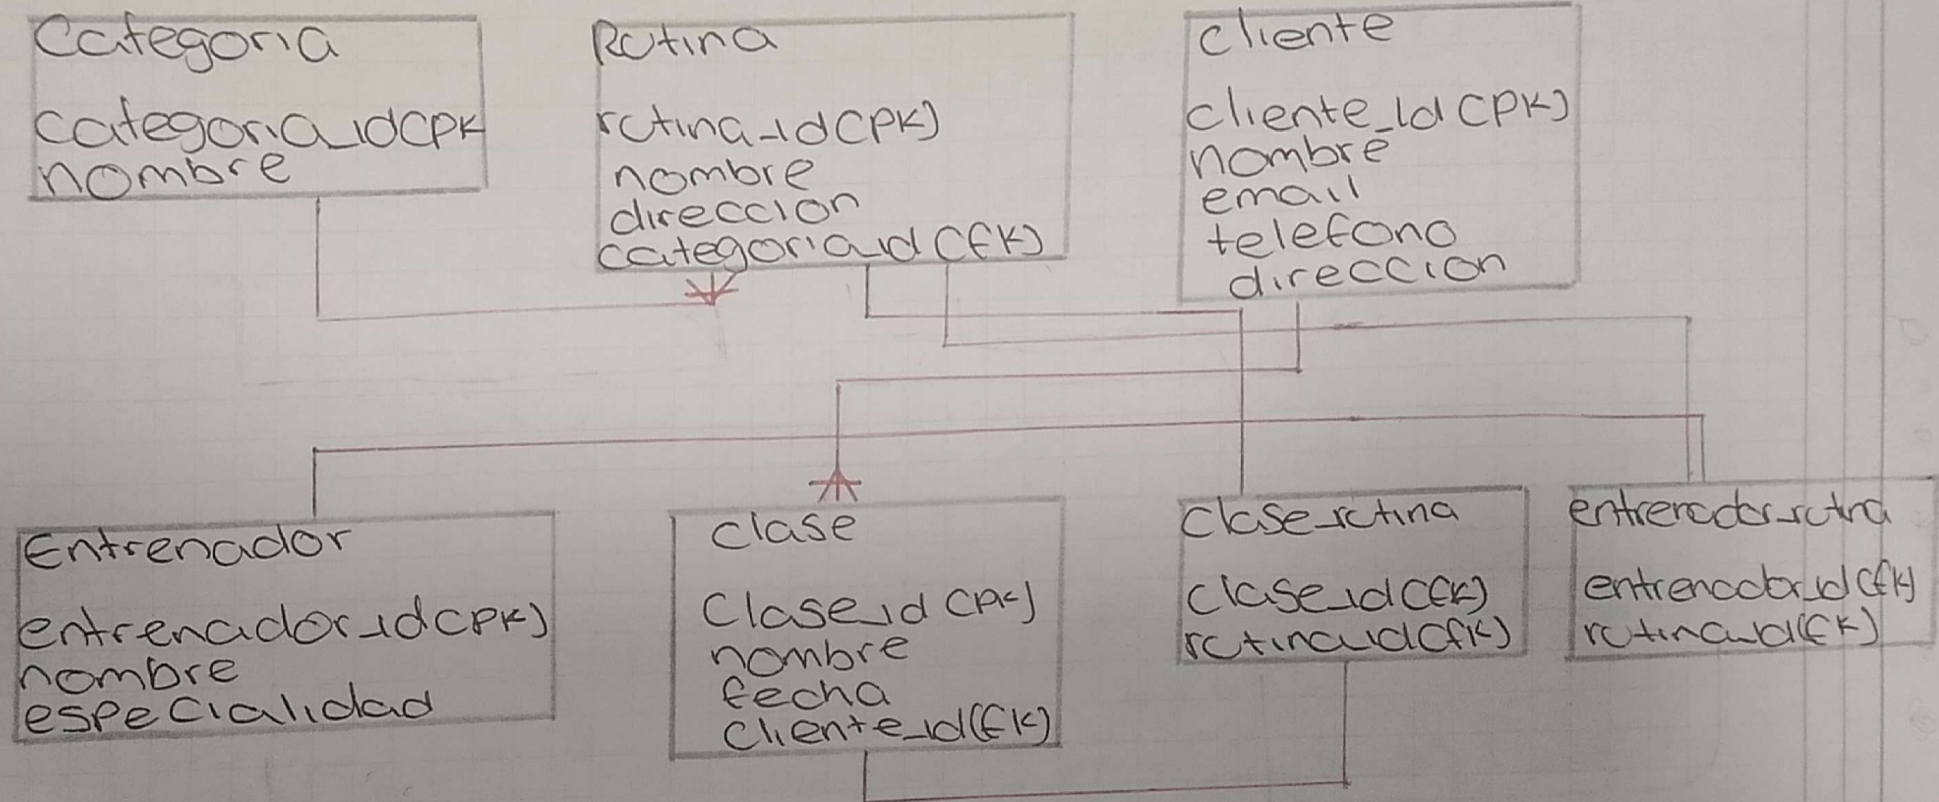 Categoria
categoria_id(PK
nombre
Rutina
rutina_id(PK)
nombre
direccion
categoria_id (fk)
cliente
cliente_id (PK)
nombre
email
telefono
direccion
Entrenador
entrenador_id(PK)
nombre
especialidad
clase
Clase_id (PK)
nombre
fecha
cliente_id(fk)
clase_rutina
clase_id(fk)
rutina_id(fk)
entrenador_rutina
entrenador_id(fk)
rutina_id(fk)